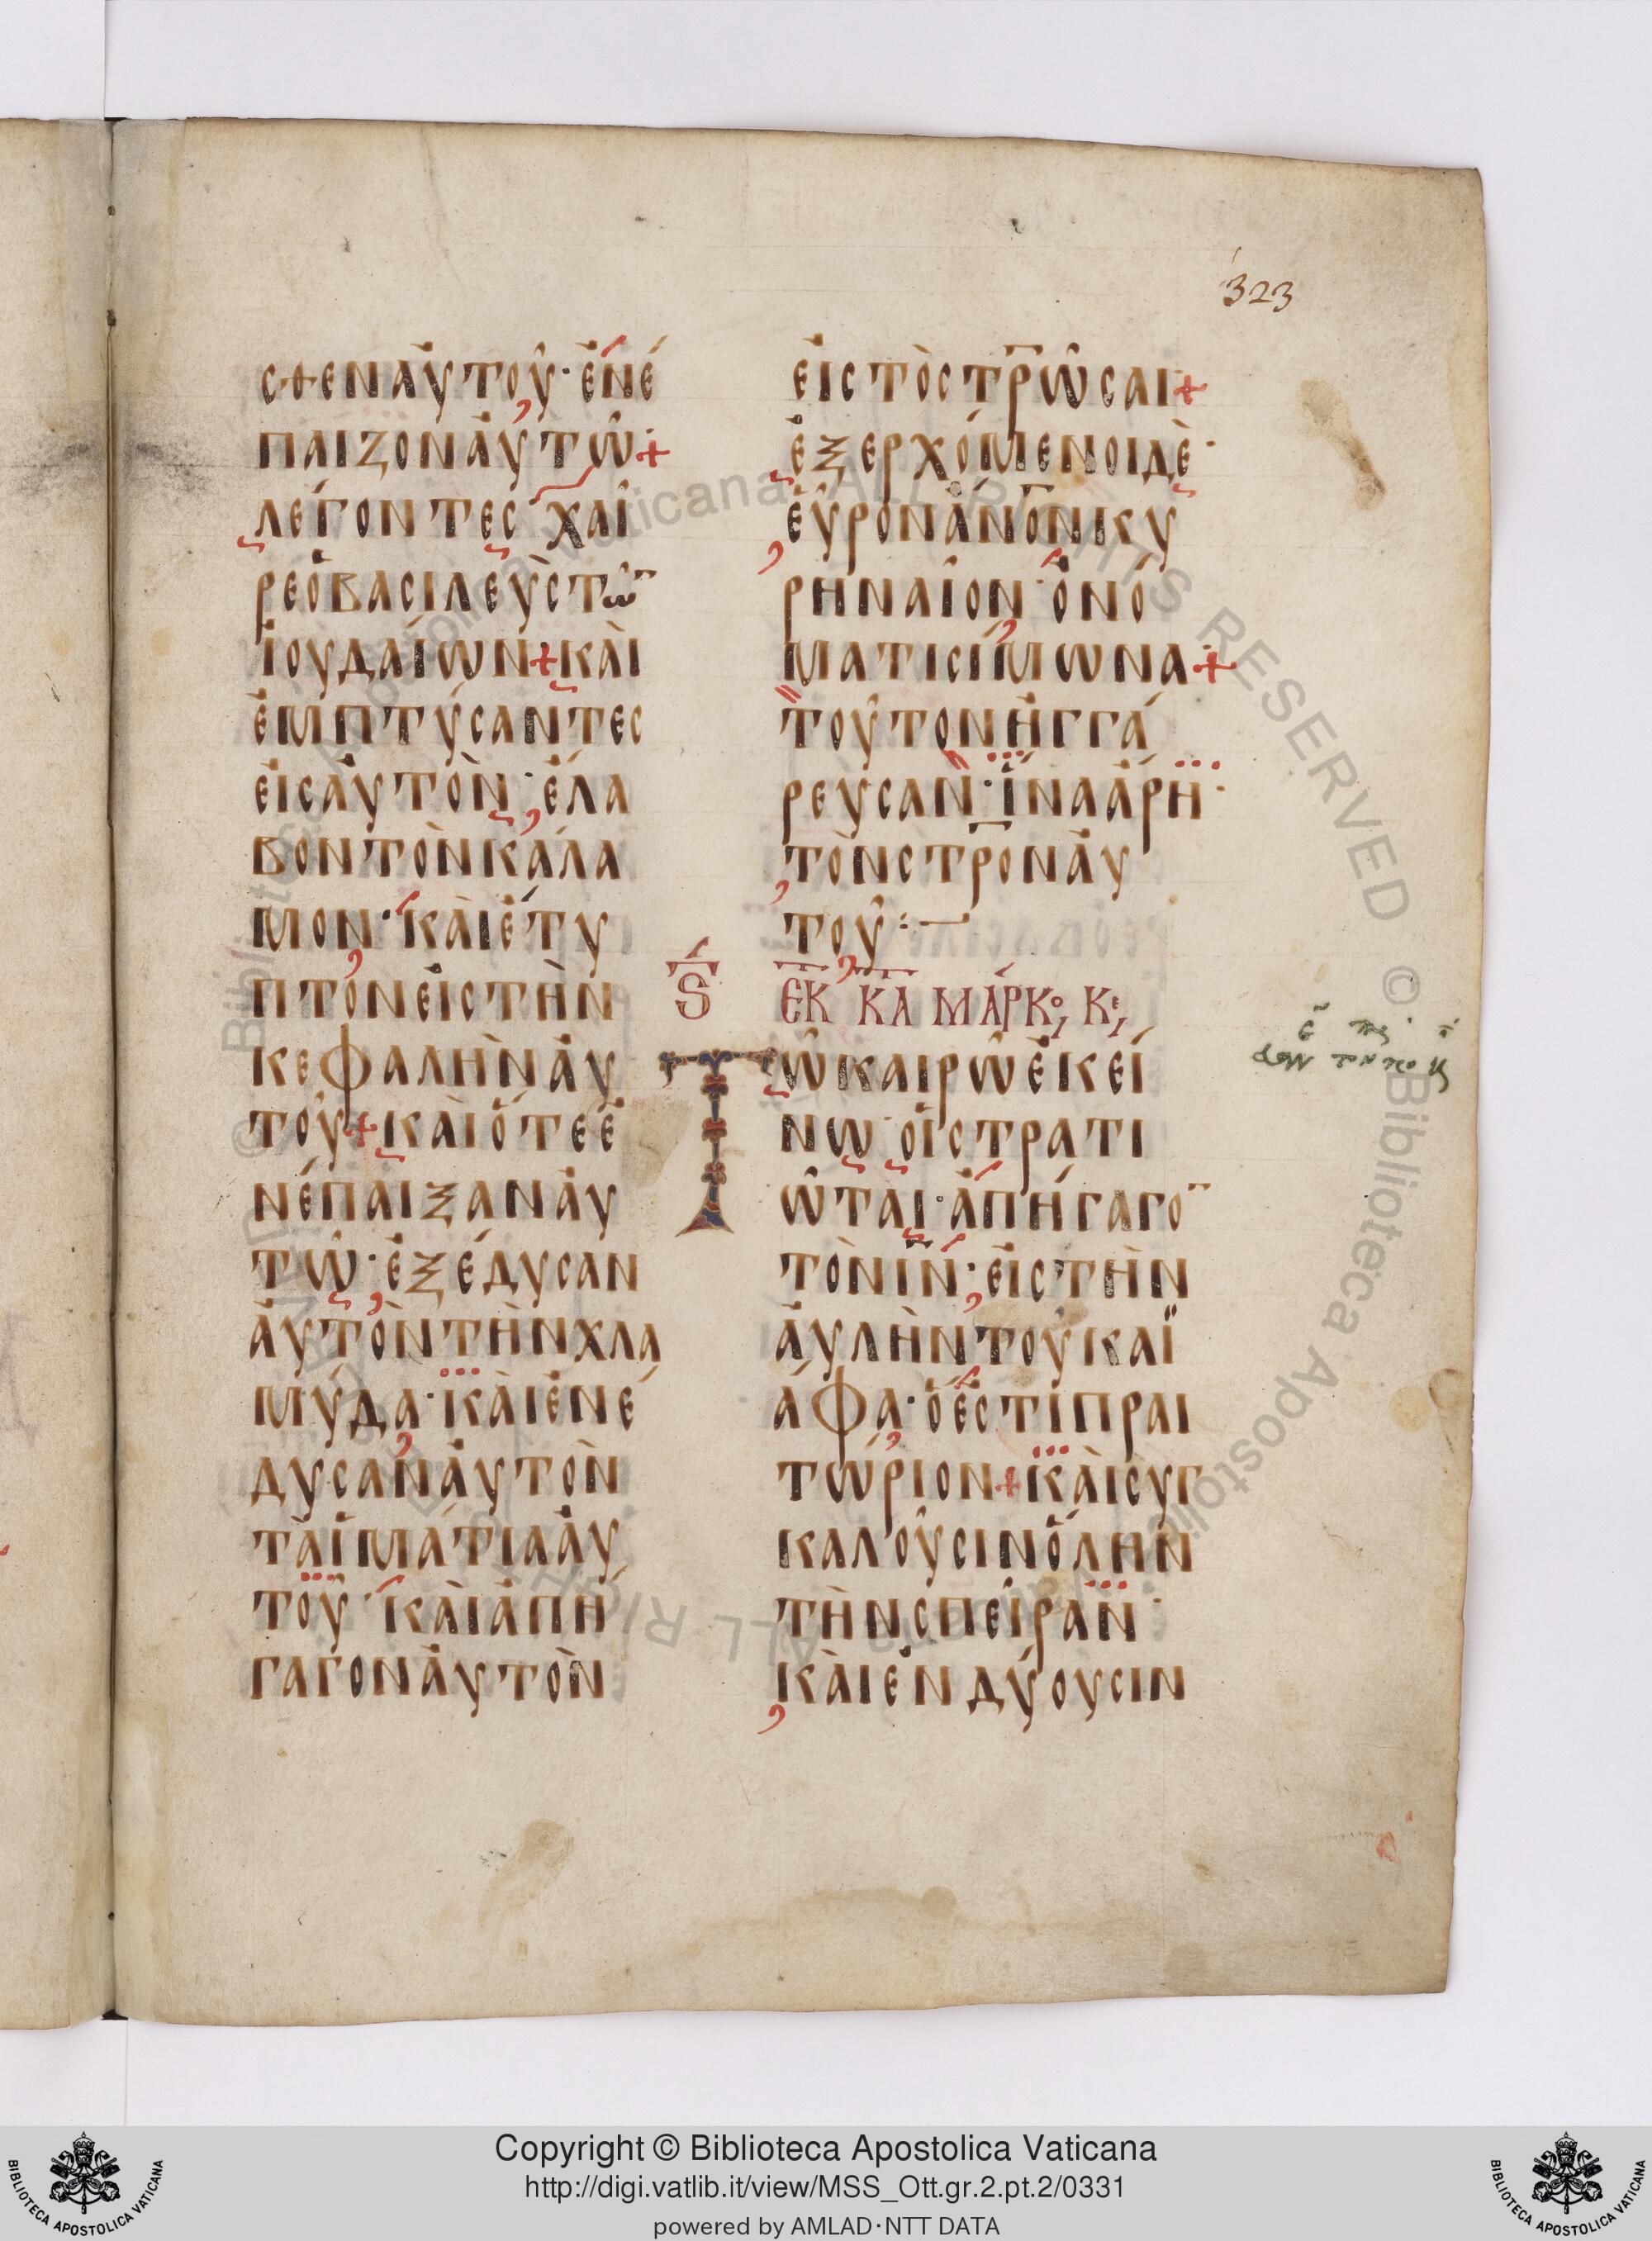 323
σθεν ἀυτοῦ· ἐνέ
παιζον ἀυτῶ+
λέγοντες χαῖ
ρε ὁ βασιλεὺς τῶ̅
ἰουδαίων+ κὰι
ἐμπτύσαντες
ἐις ἀυτὸν· ἔλα
βον τὸν κάλα
μον· κὰι ἔτυ
πτον ἐις τὴν
κεφαλὴν ἀυ
τοῦ+ κὰι ὅτε ἐ
νέπαιξαν ἀυ
τῶ· ἐξέδυσαν
ἀυτὸν τὴν χλα
μύδα· κὰι ἐνέ
δυσαν ἀυτὸν
τὰ ἱμάτια ἀυ
τοῦ κὰι ἀπή
γαγον ἀυτὸν
ἐις τὸ στ̅ρ̅ῶσαι+
ἐξερχόμενοι δὲ·
εὗρον ἄ̅ν̅ο̅ν̅ κυ
ρηναῖον· ὀνό
ματι σίμωνα+
τοῦτον ἠγγά
ρευσαν· ἵνα ἄρη·
τὸν σ̅τ̅ρ̅ον ἀυ
τοῦ:—
ς̅ ἐκ κ̅α̅ μάρκο, κε,
Τῶ καιρῶ ἐκεί
νω οἱ στρατι
ῶται· ἀπήγαγο̅
τὸν ι̅ν̅· ἐις τὴν
ἀυλὴν τοῦ καϊ
άφα· ὅ ἐστι πραι
τώριον+ κὰι συγ
καλοῦσιν ὅλην
τὴν σπεῖραν·
κὰι ἐνδύουσιν
Copyright © Biblioteca Apostolica Vaticana
http://digi.vatlib.it/view/MSS_Ott.gr.2.pt.2/0331
powered by AMLAD·NTT DATA
BIBLIOTECA APOSTOLICA VATICANA
BIBLIOTECA APOSTOLICA VATICANA